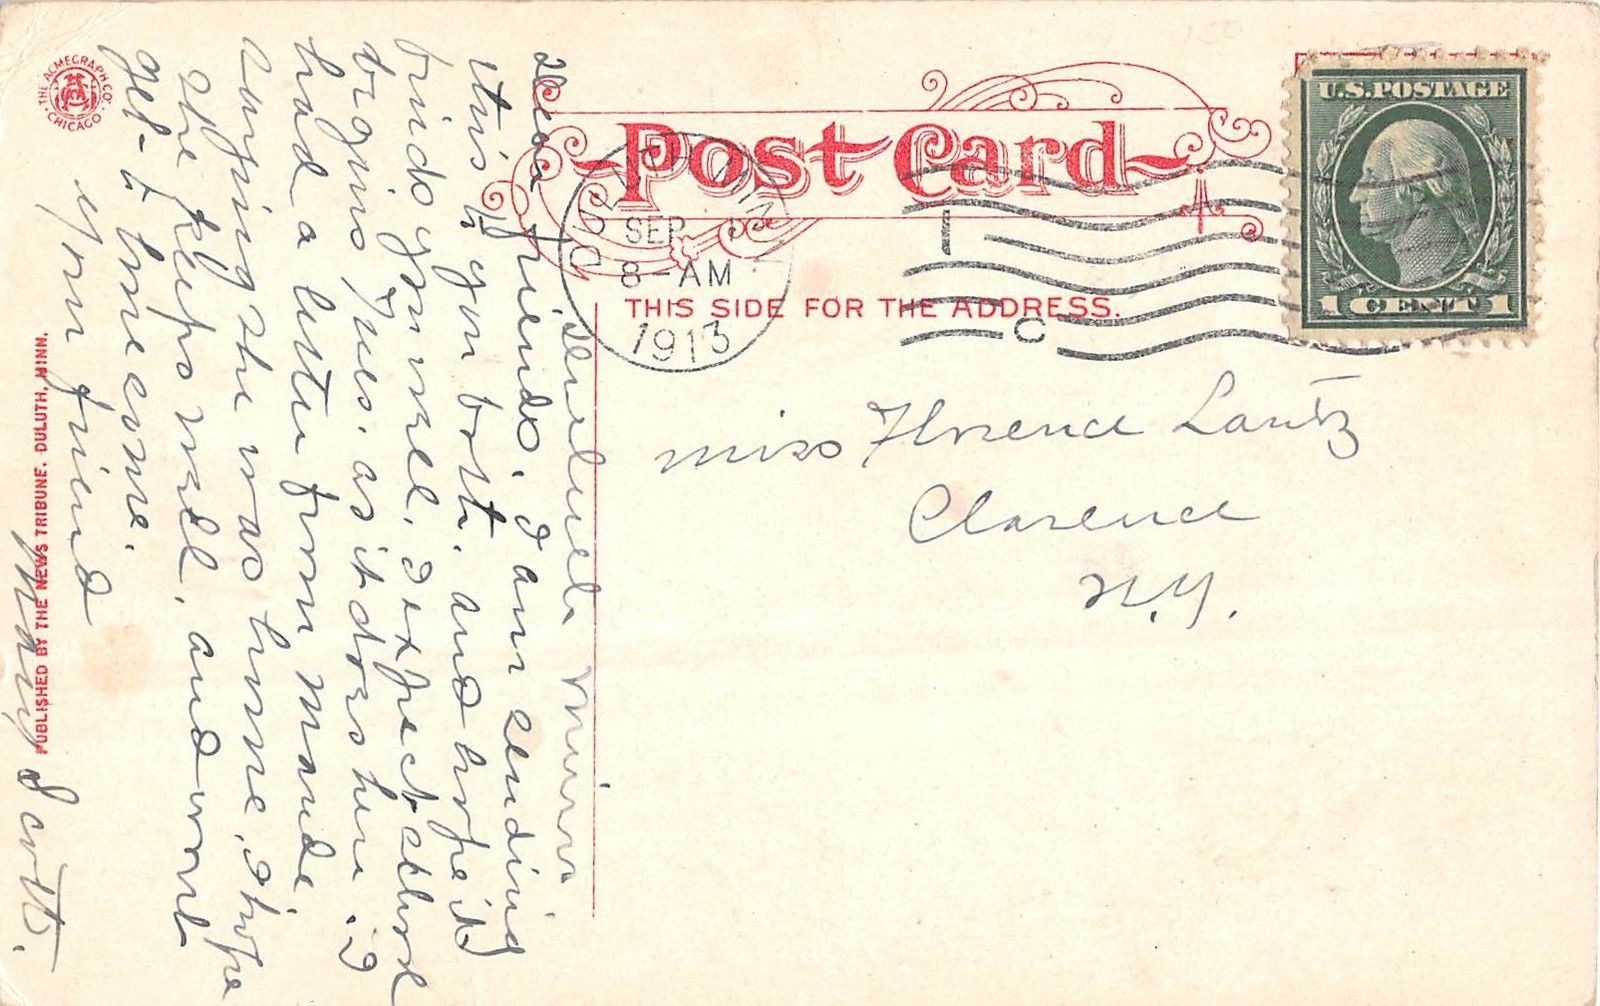 THE ACMEGRAPH CO.
CHICAGO
Post Card
THIS SIDE FOR THE ADDRESS.
U.S.POSTAGE
1 CENT 1
DULUTH, MINN.
SEP
8-AM
1913
1
C
Miss Florence Lantz
Clarence
N.Y.
Duluth Minn
Dear friends. I am sending
this to you both. and hope it
finds you well. I expect school
begins Tues. as it does here. I
had a letter from Maude
saying she was home, I hope
she keeps well. and wont
get lonesome.
Your friend
Mary Scott.
PUBLISHED BY THE NEWS TRIBUNE. DULUTH, MINN.